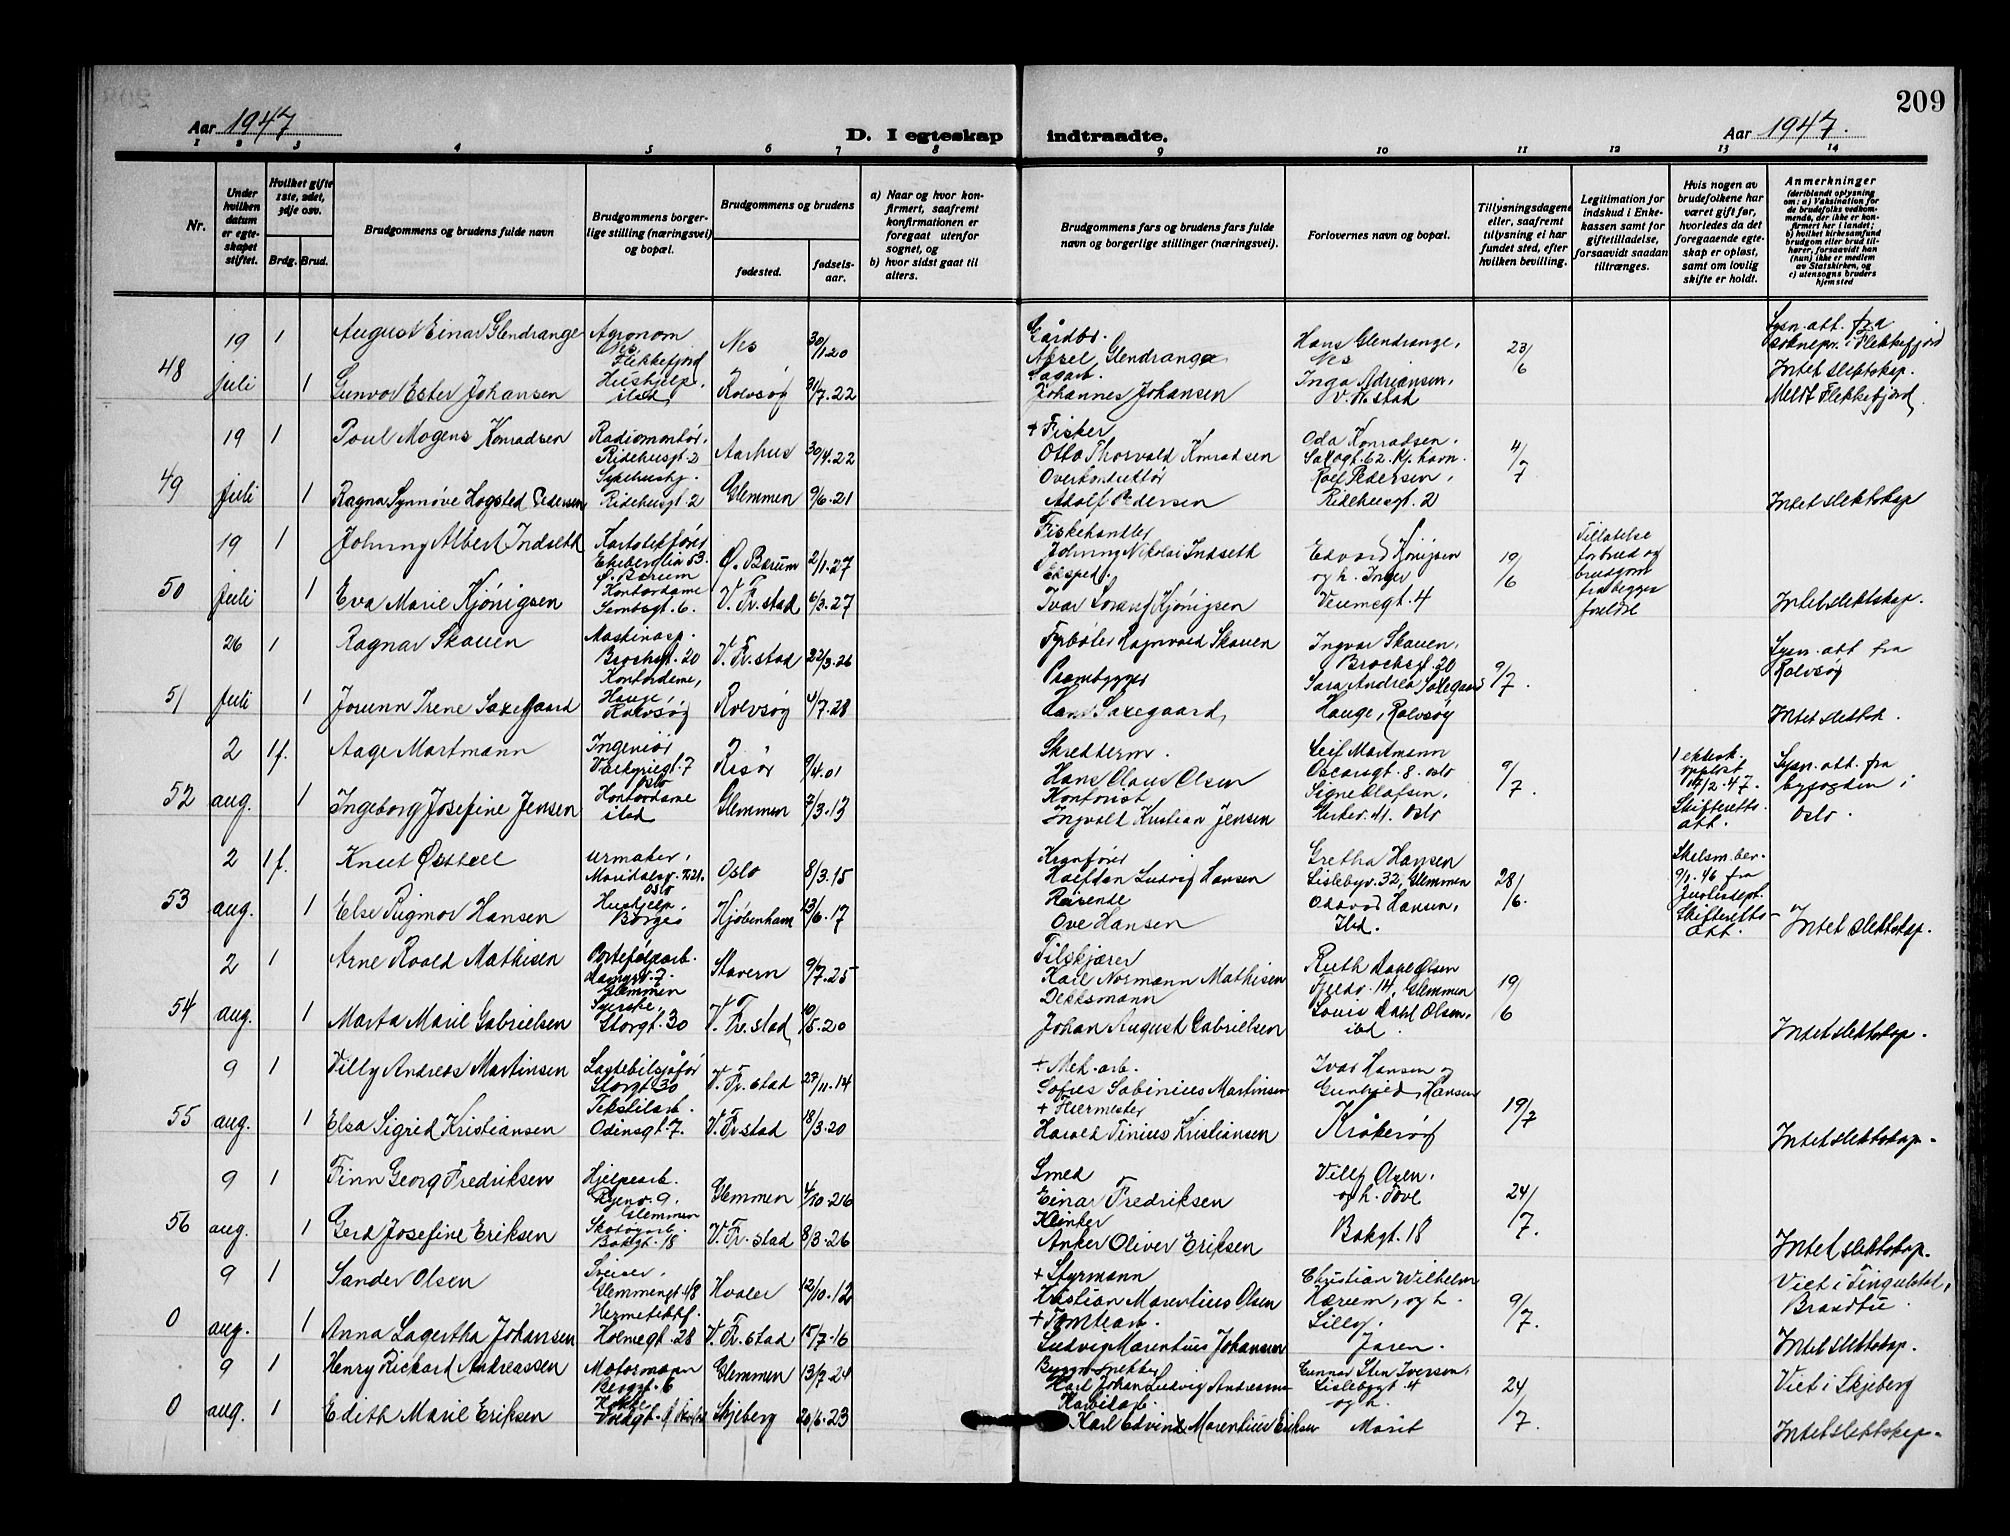 209
Aar 1947
D. I egteskap indtraadte.
Aar 1947.
1 2 3 4 5 6 7 8 9 10 11 12 13 14
Nr.
Under hvilken datum er egteskapet stiftet.
Hvilket gifte 1ste, 2det, 3dje osv.
Brdg. Brud.
Brudgommens og brudens fulde navn
Brudgommens borgerlige stilling (næringsvei) og bopæl.
Brudgommens og brudens
fødested.
fødselsaar.
a) Naar og hvor konfirmert, saafremt konfirmationen er foregaat utenfor sognet, og
b) hvor sidst gaat til alters.
Brudgommens fars og brudens fars fulde navn og borgerlige stillinger (næringsvei).
Forlovernes navn og bopæl.
Tillysningsdagene eller, saafremt tillysning ei har fundet sted, efter hvilken bevilling.
Legitimation for indskud i Enkekassen samt for giftetilladelse, forsaavidt saadan tiltrænges.
Hvis nogen av brudefolkene har været gift før, hvorledes da det foregaaende egteskap er opløst, samt om lovlig skifte er holdt.
Anmerkninger
(deriblandt oplysning om: a) Vaksination for de brudefolks vedkommende, der ikke er konfirmert her i landet; b) hvilket kirkesamfund brudgom eller brud tilhører, forsaavidt han (hun) ikke er medlem av Statskirken, og c) utensogns bruders hjemsted
48
19 juli
1
August Einar Glendrange
Agronom Nes, Flekkefjord
Nes
30/1.20
Gårdbr.
Aksel Glendrange
Hans Glendrange, Nes
23/6
Lysn. att. fra
Flekkefjord
1
Gunvor Ester Johansen
Hushjelp,
Rolvsøy
31/7.22
Sagarb.
Johannes Johansen
Inga Adriansen,
Intet slektskap.
Meldt Flekkefjord.
49
19 Juli
1
Poul Mogens Konradsen
Radiomontør,
Ridehusgt. 2
Aarhus
30/4.22
+ Fisker
Otto Thorvald Konradsen
Oda Konradsen,
Saxogt. 62. Kj.havn.
4/7
1
Ragna Synnøve Hogsted Pedersen
Ridehusgt 2
Glemmen
9/6.21
Overkonduktør
Adolf Pedersen
Rolf Pedersen,
Ridehusgt. 2
Intet slektskap
50
19 Juli
1
Johnny Albert Indseth
Kartotekfører
Ekeberglia 53.
Ø. Bærum
Ø. Bærum
2/1.27
Fiskehandler
Johnny Nikolai Indseth
Edvard Kjønigsen
og h. Inger
Veumsgt. 4
19/6
Tillatelse
for brud og
brudgom
fra begges
foreldre
1
Eva Marie Kjønigsen
Kontordame
V. Fr.stad
6/3.27
Eksped.
Kjønigsen
Intet slektskap.
51
26 Juli
1
Ragnar Skauen
Maskinasp.
Brochsgt. 20
V. Fr.stad
22/3.26
Fyrbøter Ragnvald Skauen
Ingvar Skauen,
Brochsgt. 20
9/7.
Lysn. att fra
Rolvsøy
1
Jorunn Irene Saxegaard
Kontordame,
Hauge,
Rolvsøy
Rolvsøy
4/7.28
Prambygger
Hans Saxegaard,
Sara Andrea Saxegaard
Hauge, Rolvsøy
Intet slektsk.
52
2 aug.
1f.
Aage Mortmann
Ingeniør
Valkyriegt. 7
Oslo
Risør
9/4.01
Skredderm.
Hans Claus Olsen
Leif Mortmann
Oscarsgt. 8. Oslo
9/7.
1 ektesk.
oppløst
Skifteretts-
att.
Lysn. att. fra
byfogden i
Oslo.
1
Ingeborg Josefine Jensen
Kontordame
Glemmen
7/3.13
Kontorist
Ingvald Kristian Jensen
Signe Olafsen,
Oslo
53
2 aug.
1f.
Urmaker,
Oslo
Oslo
8/3.15
Kranfører
Halfdan Ludvig Hansen
Gretha Hansen
Lislebyv. 32, Glemmen
28/6.
Skilsm. bev.
9/1.46 fra
Justisdept.
Skifteretts-
att.
1
Else Hansen
Hushjelp,
Borge
Kjøbenhavn
13/6.17
Reisende
Ove Hansen
Oddvar Hansen,
Ibd.
Intet slektskap.
54
2 aug.
1
Arne Roald Mathisen
Glemmen
Stavern
9/7.25
Filskjærer
Karl Normann Mathisen
Ruth Dahl Olsen
14, Glemmen
19/6
1
Marta Marie Gabrielsen
Syerske,
Storgt. 30
V. Fr.stad
10/5.20
Dekksmann
Johan August Gabrielsen
Louis Dahl Olsen,
ibd.
Intet slektskap.
55
9 aug.
1
Villy Andreas Martinsen
Lastebilsjåfør
Storgt. 30
V. Fr.stad
27/11.14
+ Mek. arb.
Sofus Sabinius Martinsen
Ivar Hansen og
Hansen
Kråkerøy
19/7
1
Elsa Sigrid Kristiansen
Tekstilarb.
Odinsgt. 7.
V. Fr.stad
18/3.20
Harald Tinius Kristiansen
Intet slektskap.
56
9 aug.
1
Finn Georg Fredriksen
Hjelpearb.
Glemmen
Glemmen
4/10.26
Smed
Einar Fredriksen
Villy Olsen,
og h. Tove
Bakgt. 18
24/7.
1
Gerd Josefine Eriksen
Skotøyarb.
Bakgt. 18
V. Fr.stad
8/3.26
Klinker
Anker Oliver Eriksen
Intet slektskap.
0
9 aug.
1
Sander Olsen
Sveiser,
Glemmengt. 48
Hvaler
12/10.12
+ Styrmann
Kristian Marentius Olsen
Christian Wilhelm
Hareem, og h.
Lilly,
Jaren.
9/7.
Viet i Tingelstad,
Brandbu.
1
Anna Lagertha Johansen
Hermetikkf.
Holmegt. 28
V. Fr.stad
15/7.16
+ Tomtearb.
Ludvig Marentius Johansen
Intet slektskap.
0
9 aug.
1
Henry Rickard Andreassen
Motormann
Berggt. 6
Glemmen
13/7.24
Karl Johan Ludvig Andreassen
Gunnar Sten Iversen,
Lislebygt. 4
og h.
Marit
24/7.
Viet i Skjeberg
1
Edith Marie Eriksen
Skjeberg
20/6.23
Karl Edvind Marentius Eriksen
Intet slektskap.